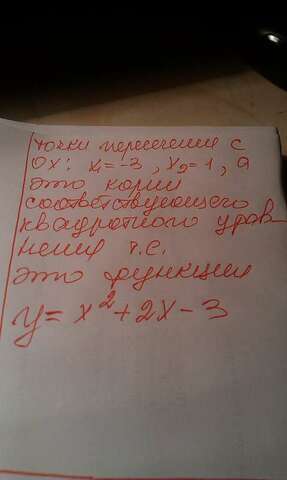 точки пересечения с
OX: x₁=-3, x₂=1, а
это корни
соответствующего
квадратного урав
нения т.е.
это функция
y= x²+2x-3